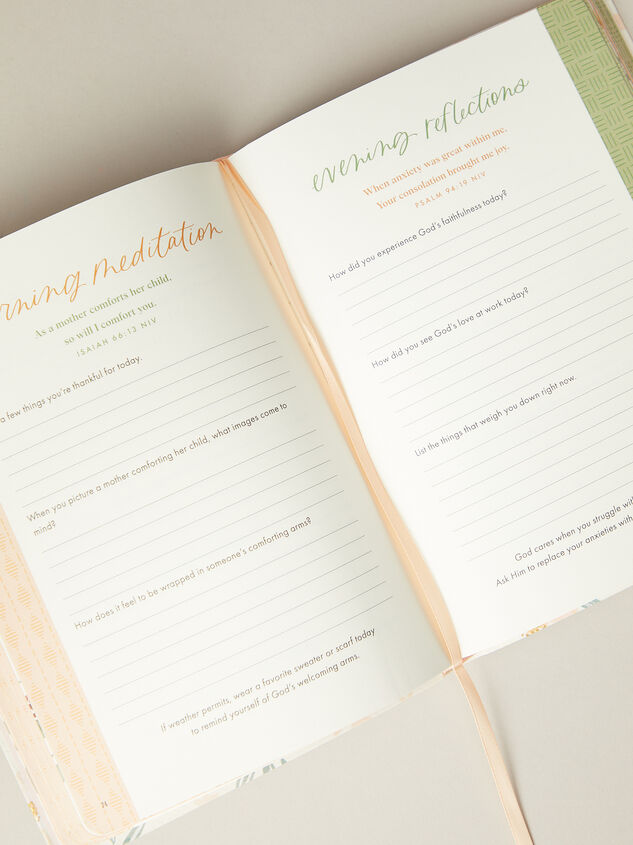 rning meditation
As a mother comforts her child,
so will I comfort you.
ISAIAH 66:13 NIV
a few things you're thankful for today.
When you picture a mother comforting her child, what images come to
mind?
How does it feel to be wrapped in someone's comforting arms?
If weather permits, wear a favorite sweater or scarf today
to remind yourself of God's welcoming arms.
24
evening reflections
When anxiety was great within me,
Your consolation brought me joy.
PSALM 94:19 NIV
How did you experience God's faithfulness today?
How did you see God's love at work today?
List the things that weigh you down right now.
God cares when you struggle wit
Ask Him to replace your anxieties with